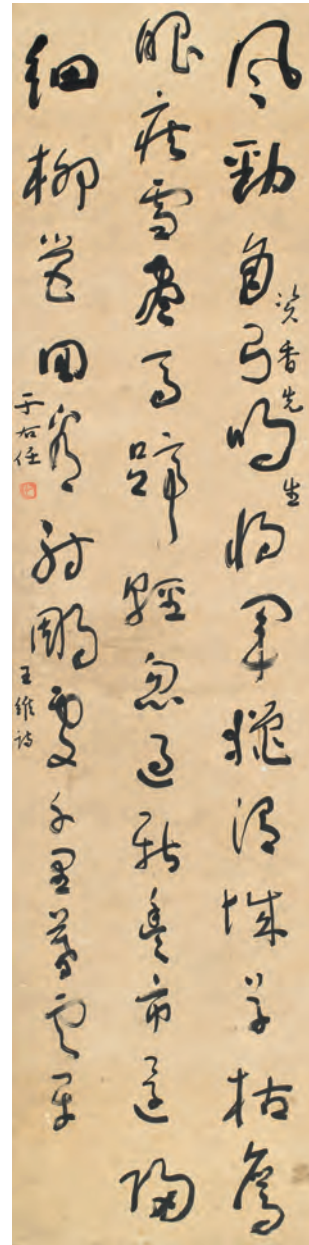 風勁角弓鳴將軍獵渭城草枯鷹
香先生
眼疾雪盡馬蹄輕忽過新豐市還歸
細柳營回看射鵰處千里暮雲平
王維詩
于右任